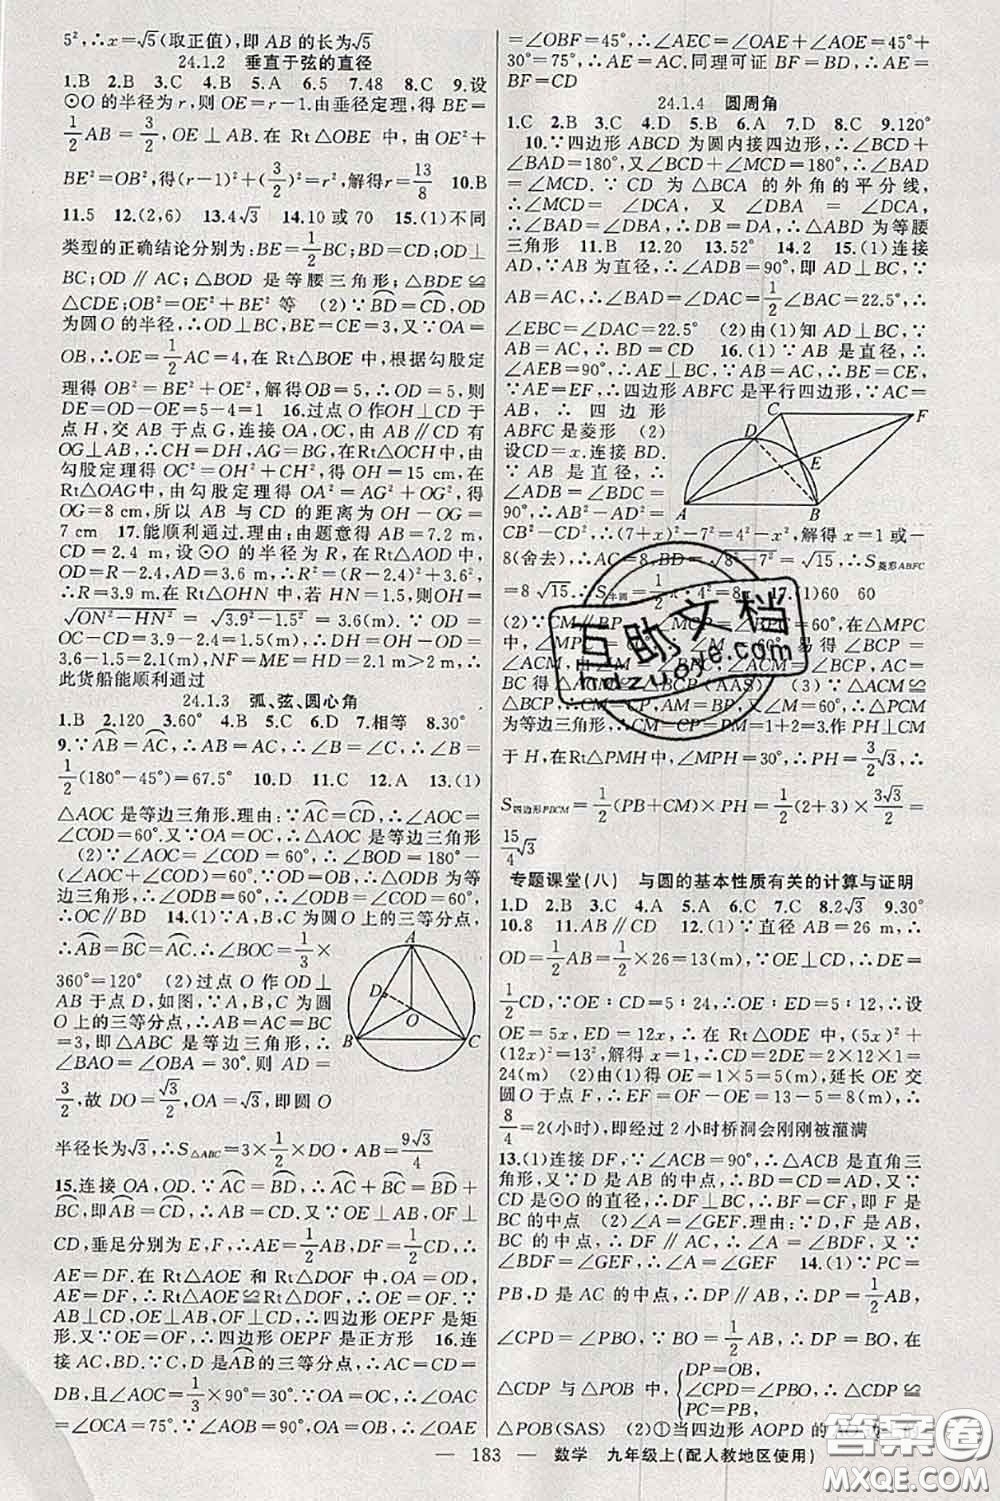 5²,∴x=√5(取正值),即AB的长为√5
24.1.2 垂直于弦的直径
1.B 2.B 3.C 4.B 5.A 6.5 7.48 8.C 9.设
⊙O的半径为r,则OE=r-1.由垂径定理,得BE=
1/2 AB=3/2,OE⊥AB.在Rt△OBE中,由OE²+
BE²=OB²,得(r-1)²+(3/2)²=r²,解得r=13/8 10.B
11.5 12.(2,6) 13.4√3 14.10或70 15.(1)不同
类型的正确结论分别为:BE=1/2 BC;BD=CD;OD⊥
BC;OD∥AC;△BOD是等腰三角形;△BDE≌
△CDE;OB²=OE²+BE²等 (2)∵BD=CD,OD
为圆O的半径,∴OD⊥BC,BE=CE=3,又∵OA=
OB,∴OE=1/2 AC=4,在Rt△BOE中,根据勾股定
理得OB²=BE²+OE²,解得OB=5,∴OD=5,则
DE=OD-OE=5-4=1 16.过点O作OH⊥CD于
点H,交AB于点G,连接OA,OC,由于AB∥CD有
OG⊥AB,∴CH=DH,AG=BG,在Rt△OCH中,由
勾股定理得OC²=OH²+CH²,得OH=15 cm,在
Rt△OAG中,由勾股定理得OA²=AG²+OG²,得
OG=8 cm,所以AB与CD的距离为OH-OG=
7 cm 17.能顺利通过.理由:由题意得AB=7.2 m,
CD=2.4 m,设⊙O的半径为R,在Rt△AOD中,
OD=R-2.4,AD=3.6,∴R²=(R-2.4)²+3.6²,
∴R=3.9 m.在Rt△OHN中,若HN=1.5,则OH=
√(ON²-HN²)=√(3.9²-1.5²)=3.6 m.∵OD=
OC-DC=3.9-2.4=1.5(m),∴DH=OH-OD=
3.6-1.5=2.1(m),NF=ME=HD=2.1m>2m,∴
此货船能顺利通过
24.1.3 弧、弦、圆心角
1.B 2.120 3.60° 4.B 5.C 6.D 7.相等 8.30°
9.∵AB=AC,∴AB=AC,∴∠B=∠C,∴∠B=
1/2(180°-45°)=67.5° 10.D 11.C 12.A 13.(1)
△AOC是等边三角形.理由:∵AC=CD,∴∠AOC=
∠COD=60°.又∵OA=OC,∴△AOC是等边三角形
(2)∵∠AOC=∠COD=60°,∴∠BOD=180°-
(∠AOC+∠COD)=60°.∵OD=OB,∴△ODB为
等边三角形,∴∠ODB=60°,∴∠ODB=∠COD=60°,
∴OC∥BD 14.(1)∵A,B,C为圆O上的三等分点,
∴AB=BC=AC.∴∠BOC=1/3×
360°=120° (2)过点O作OD⊥
AB于点D,如图,∵A,B,C为圆
O上的三等分点,∴AB=AC=BC
=3,即△ABC是等边三角形,∴
∠BAO=∠OBA=30°.则AD=
3/2,故DO=√3/2,OA=√3,即圆O
半径长为√3,∴S△ABC=3×1/2×DO·AB=9√3/4
15.连接OA,OD.∵AC=BD,∴AC+BC=BD+
BC,即AB=CD,∴AB=CD.又∵OE⊥AB,OF⊥
CD,垂足分别为E,F,∴AE=1/2 AB,DF=1/2 CD,∴
AE=DF.在Rt△OAE和Rt△DOF中,OA=OD,
AE=DF,∴Rt△OAE≌Rt△DOF,∴OE=OF.∵
AB⊥CD,OE⊥AB,OF⊥CD,∴四边形OEPF是矩
形.又∵OE=OF,∴四边形OEPF是正方形 16.连
接AC,BD.∵C,D是AB的三等分点,∴AC=CD=
DB,且∠AOC=1/3×90°=30°.∵OA=OC,∴∠OAC
=∠OCA=75°.∵∠AOB=90°,OA=OB,∴∠OAE
=∠OBF=45°,∴∠AEC=∠OAE+∠AOE=45°+
30°=75°,∴AE=AC.同理可证BF=BD,∴AE=
BF=CD
24.1.4 圆周角
1.C 2.B 3.C 4.D 5.B 6.A 7.D 8.C 9.120°
10.∵四边形ABCD为圆内接四边形,∴∠BCD+
∠BAD=180°,又∠BCD+∠MCD=180°,∴∠BAD
=∠MCD.∵CD为△BCA的外角的平分线,
∴∠MCD=∠DCA,∴∠BAD=∠DCA=
∠DBA,∴∠DAB=∠DBA,∴△DBA为等腰
三角形 11.B 12.20 13.52° 14.2 15.(1)连接
AD,∵AB为直径,∴∠ADB=90°,即AD⊥BC,又
AB=AC,∴BD=CD,∴∠BAD=∠DAC=1/2∠BAC=22.5°,∴
∠EBC=∠DAC=22.5° (2)由(1)知AD⊥BC,
∵AB=AC,∴BD=CD 16.(1)∵AB是直径,∴
∠AEB=90°,∴AE⊥BC,∵AB=AC,∴BE=CE,
∵AE=EF,∴四边形ABFC是平行四边形,∵AC=
AB,∴四边形
ABFC是菱形 (2)
设CD=x.连接BD.
∵AB是直径,∴
∠ADB=∠BDC=
90°,∴AB²-AD²=
CB²-CD²,∴(7+x)²-7²=4²-x²,解得x=1或-
8(舍去),∴AC=8,BD=√(8²-7²)=√15,∴S菱形ABFC
=8√15.∴S半圆=1/2·π·4²=8π 17.(1)60 60
(2)∵CM∥BP,∴∠MCP=∠BPC=60°,在△MPC
≌△BPC(AAS)
为等边三角形,∴CM=CP=PM=1+2=3.作PH⊥CM
于H,在Rt△PMH中,∠MPH=30°,∴PH=3/2√3,
S四边形PBCM=1/2(PB+CM)×PH=1/2(2+3)×3√3/2=
15/4√3
专题课堂(八) 与圆的基本性质有关的计算与证明
1.D 2.B 3.C 4.A 5.A 6.C 7.C 8.2√3 9.30°
10.8 11.AB∥CD 12.(1)∵直径AB=26 m,∴
OD=1/2 AB=1/2×26=13(m),∵OE⊥CD,∴DE=
1/2 CD,∵OE∶CD=5∶24,∴OE∶ED=5∶12,∴设
OE=5x,ED=12x,∴在Rt△ODE中,(5x)²+
(12x)²=13²,解得x=1,∴CD=2DE=2×12×1=
24(m) (2)由(1)得OE=1×5=5(m),延长OE交
圆O于点F,∴EF=OF-OE=13-5=8(m),∴
8/4=2(小时),即经过2小时桥洞会刚刚被灌满
13.(1)连接DF,∵∠ACB=90°,∴△ABC是直角三
角形,又∵D是AB的中点,∴BD=CD=AD,又∵
CD是⊙O的直径,∴DF⊥BC,∴BF=CF,即F是
BC的中点 (2)∠A=∠GEF.理由:∵D,F是AB,
BC的中点,∴DF∥AC,∴∠A=∠BDF,又∵
∠BDF=∠GEF,∴∠A=∠GEF 14.(1)∵PC=
PB,D是AC的中点,∴DP∥AB,∴DP=1/2 AB,
∠CPD=∠PBO,∵BO=1/2 AB,∴DP=BO.在
△CDP与△POB中,{DP=OB,
∠CPD=∠PBO,∴△CDP≌
PC=PB,
△POB(SAS) (2)①当四边形AOPD的
A B C D E F
A B C D O
互助文档
hdzuoye.com
答案圈
MXQE.COM
— 183 — 数学 九年级上(配人教地区使用)